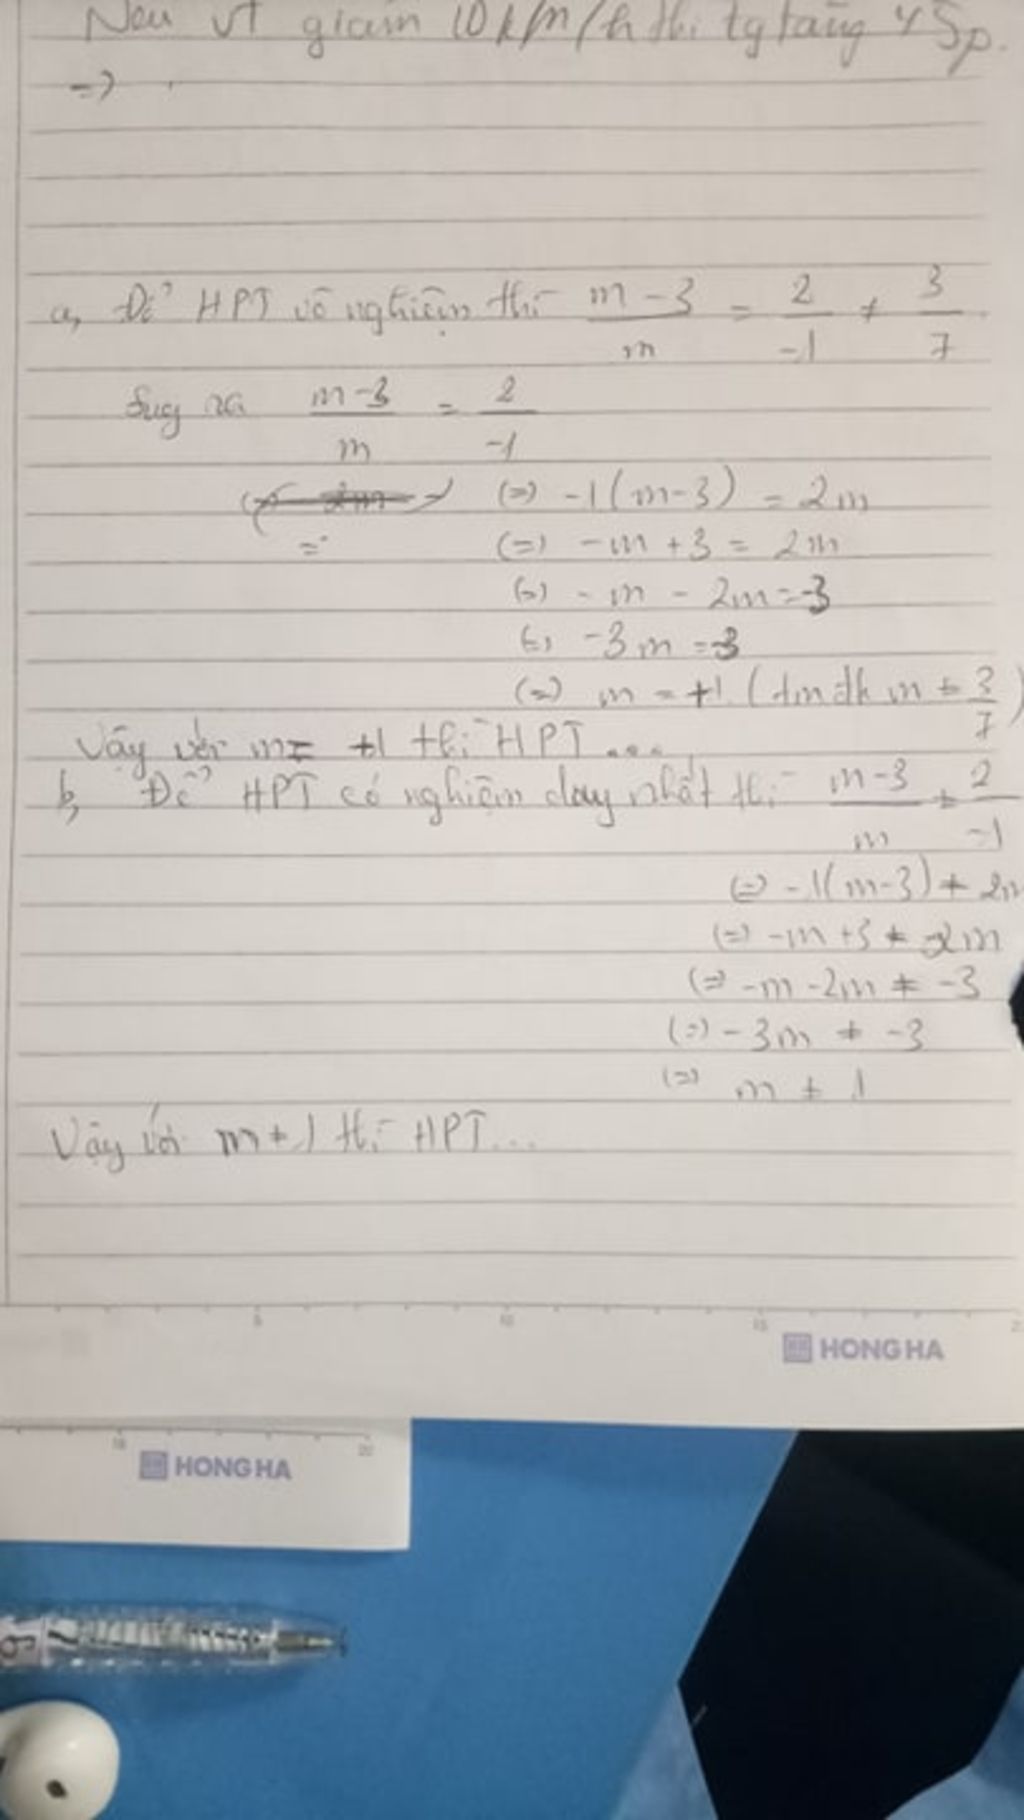 Nếu vt giảm 10km/h thì tg tăng 45p.
=>
a, Để HPT vô nghiệm thì m-3/m = 2/-1 ≠ 3/7
Suy ra m-3/m = 2/-1
(=) -1(m-3) = 2m
=
(=) -m+3 = 2m
(=) -m - 2m = -3
(=) -3m = -3
(=) m = +1 (tmđk m ≠ 3/7)
Vậy với m = +1 thì HPT....
b, Để HPT có nghiệm duy nhất thì m-3/m ≠ 2/-1
(=) -1(m-3) ≠ 2m
(=) -m+3 ≠ 2m
(=) -m-2m ≠ -3
(=) -3m ≠ -3
(=) m ≠ 1
Vậy với m ≠ 1 thì HPT...
5 10 15
HONG HA
20
HONG HA